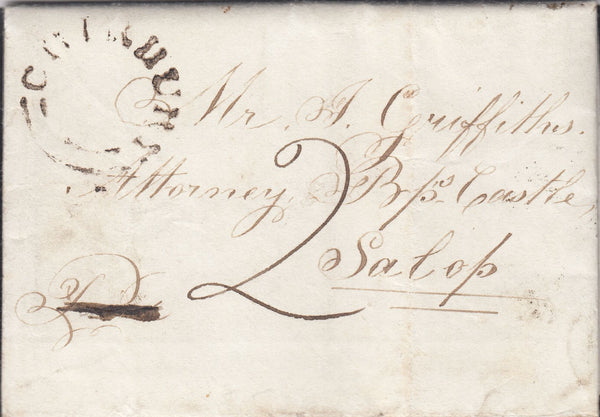 CHIRBURY
Mr. J. Griffiths.
Attorney, Bps. Castle,
2
Salop